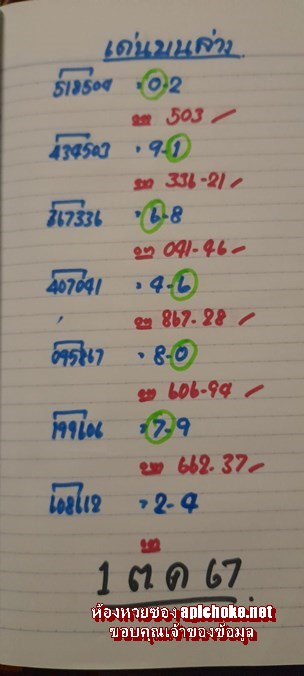 เด่นบนล่าง
518504 · 0-2
ผล 503 ✓
434503 · 9-1
ผล 336-21 ✓
367336 · 6-8
ผล 041-46 ✓
407041 · 4-6
ผล 867-28 ✓
095867 · 8-0
ผล 606-94 ✓
199606 · 7-9
ผล 662-37 ✓
608662 · 2-4
ผล
1 ต ค 67
ห้องหวยซอง apichoke.net
ขอบคุณเจ้าของข้อมูล